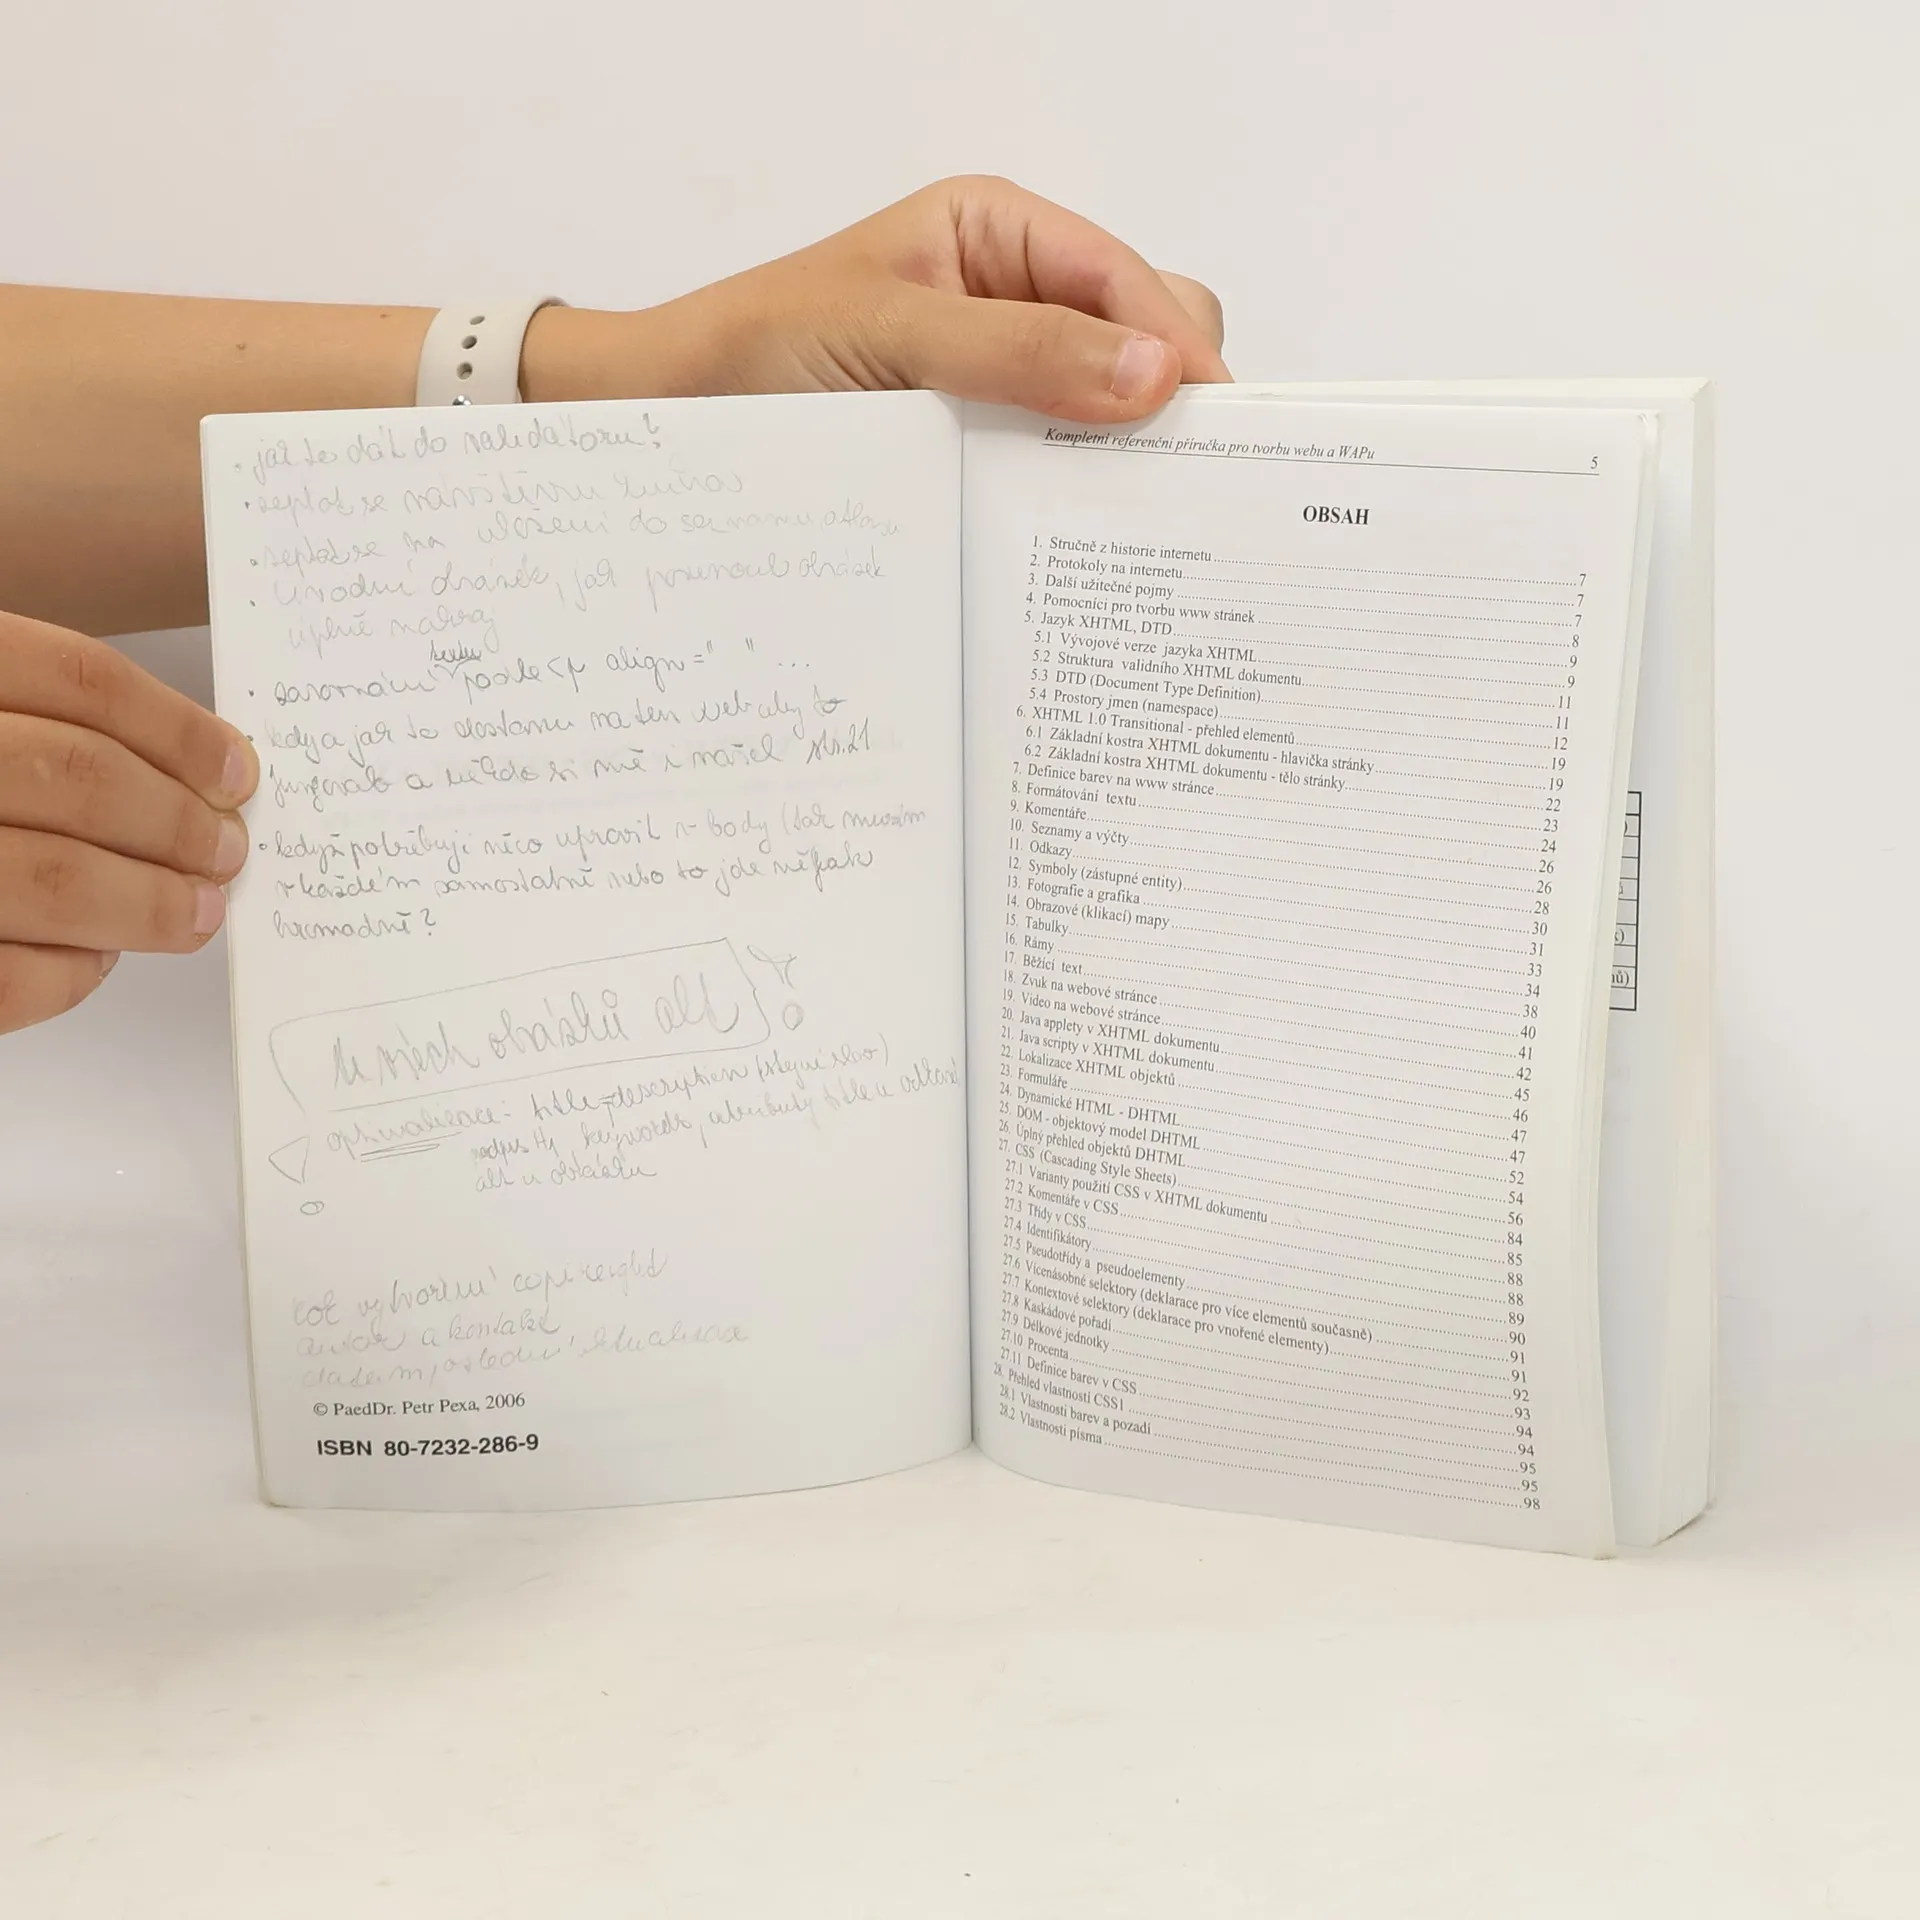 • jak to dát do validátoru?
• zeptat se
• zeptat se na vložení do seznamu
• Úvodní obrázek, jak posunout obrázek
úplně nahoru
• zarovnání textu podle <p align=" " ...
• kdy a jak to dostanu na ten web aby to
fungovalo a někdo si mě i našel str. 21
• když potřebuji něco upravit v body (tak musím
v každém samostatně nebo to jde nějak
hromadně?
U všech obrázků alt !
! optimalizace: title=description (stejné slovo)
nadpis H1 keywords, atributy title u odkazů
alt u obrázku
rok vytvoření copireight
autor a kontakt
datum poslední aktualizace
© PaedDr. Petr Pexa, 2006
ISBN 80-7232-286-9
Kompletní referenční příručka pro tvorbu webu a WAPu 5
OBSAH
1. Stručně z historie internetu ..... 7
2. Protokoly na internetu ..... 7
3. Další užitečné pojmy ..... 7
4. Pomocníci pro tvorbu www stránek ..... 8
5. Jazyk XHTML, DTD ..... 9
5.1 Vývojové verze jazyka XHTML ..... 9
5.2 Struktura validního XHTML dokumentu ..... 11
5.3 DTD (Document Type Definition) ..... 11
5.4 Prostory jmen (namespace) ..... 12
6. XHTML 1.0 Transitional - přehled elementů ..... 19
6.1 Základní kostra XHTML dokumentu - hlavička stránky ..... 19
6.2 Základní kostra XHTML dokumentu - tělo stránky ..... 22
7. Definice barev na www stránce ..... 23
8. Formátování textu ..... 24
9. Komentáře ..... 26
10. Seznamy a výčty ..... 26
11. Odkazy ..... 28
12. Symboly (zástupné entity) ..... 30
13. Fotografie a grafika ..... 31
14. Obrazové (klikací) mapy ..... 33
15. Tabulky ..... 34
16. Rámy ..... 38
17. Běžící text ..... 40
18. Zvuk na webové stránce ..... 41
19. Video na webové stránce ..... 42
20. Java applety v XHTML dokumentu ..... 45
21. Java scripty v XHTML dokumentu ..... 46
22. Lokalizace XHTML objektů ..... 47
23. Formuláře ..... 47
24. Dynamické HTML - DHTML ..... 52
25. DOM - objektový model DHTML ..... 54
26. Úplný přehled objektů DHTML ..... 56
27. CSS (Cascading Style Sheets) ..... 84
27.1 Varianty použití CSS v XHTML dokumentu ..... 85
27.2 Komentáře v CSS ..... 88
27.3 Třídy v CSS ..... 88
27.4 Identifikátory ..... 89
27.5 Pseudotřídy a pseudoelementy ..... 90
27.6 Vícenásobné selektory (deklarace pro více elementů současně) ..... 91
27.7 Kontextové selektory (deklarace pro vnořené elementy) ..... 91
27.8 Kaskádové pořadí ..... 92
27.9 Délkové jednotky ..... 93
27.10 Procenta ..... 94
27.11 Definice barev v CSS ..... 94
28. Přehled vlastností CSS1 ..... 95
28.1 Vlastnosti barev a pozadí ..... 95
28.2 Vlastnosti písma ..... 98